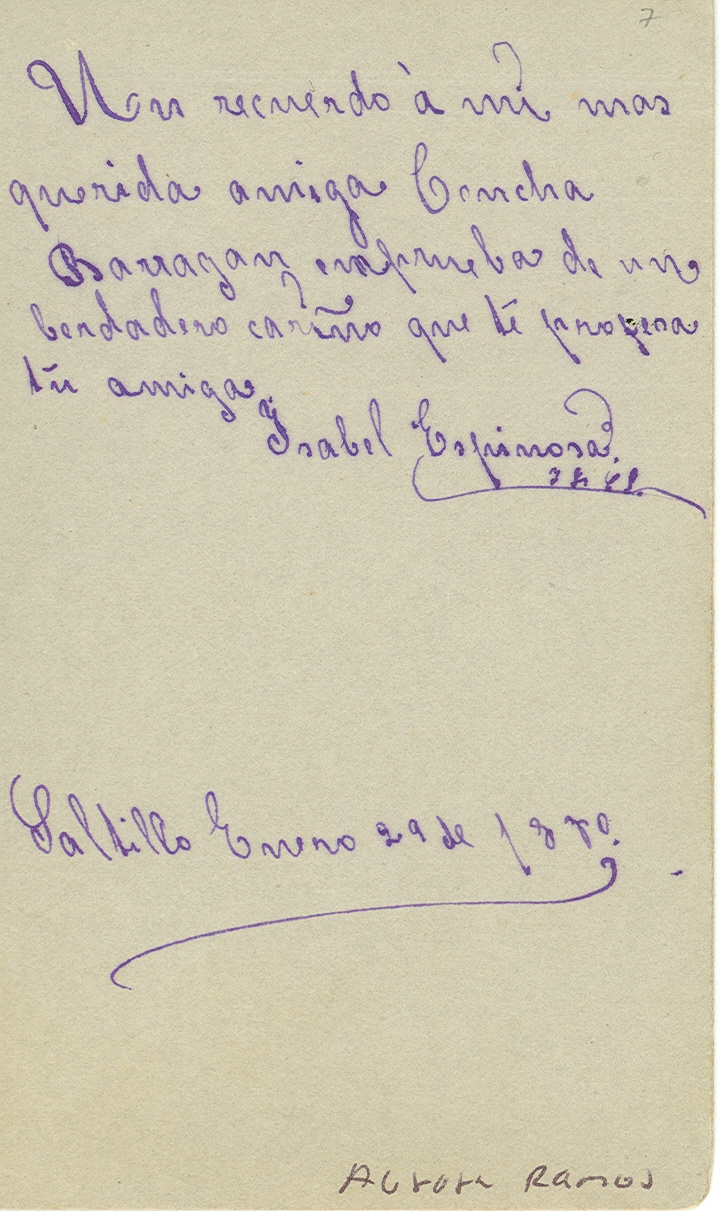 7
Un recuerdo à mi mas
querida amiga Concha
Barragan enprueba de un
berdadero cariño que té profesa
tú amiga
Ysabel Espinosa.
Saltillo Enero 29 de 1880.
Aurora Ramos